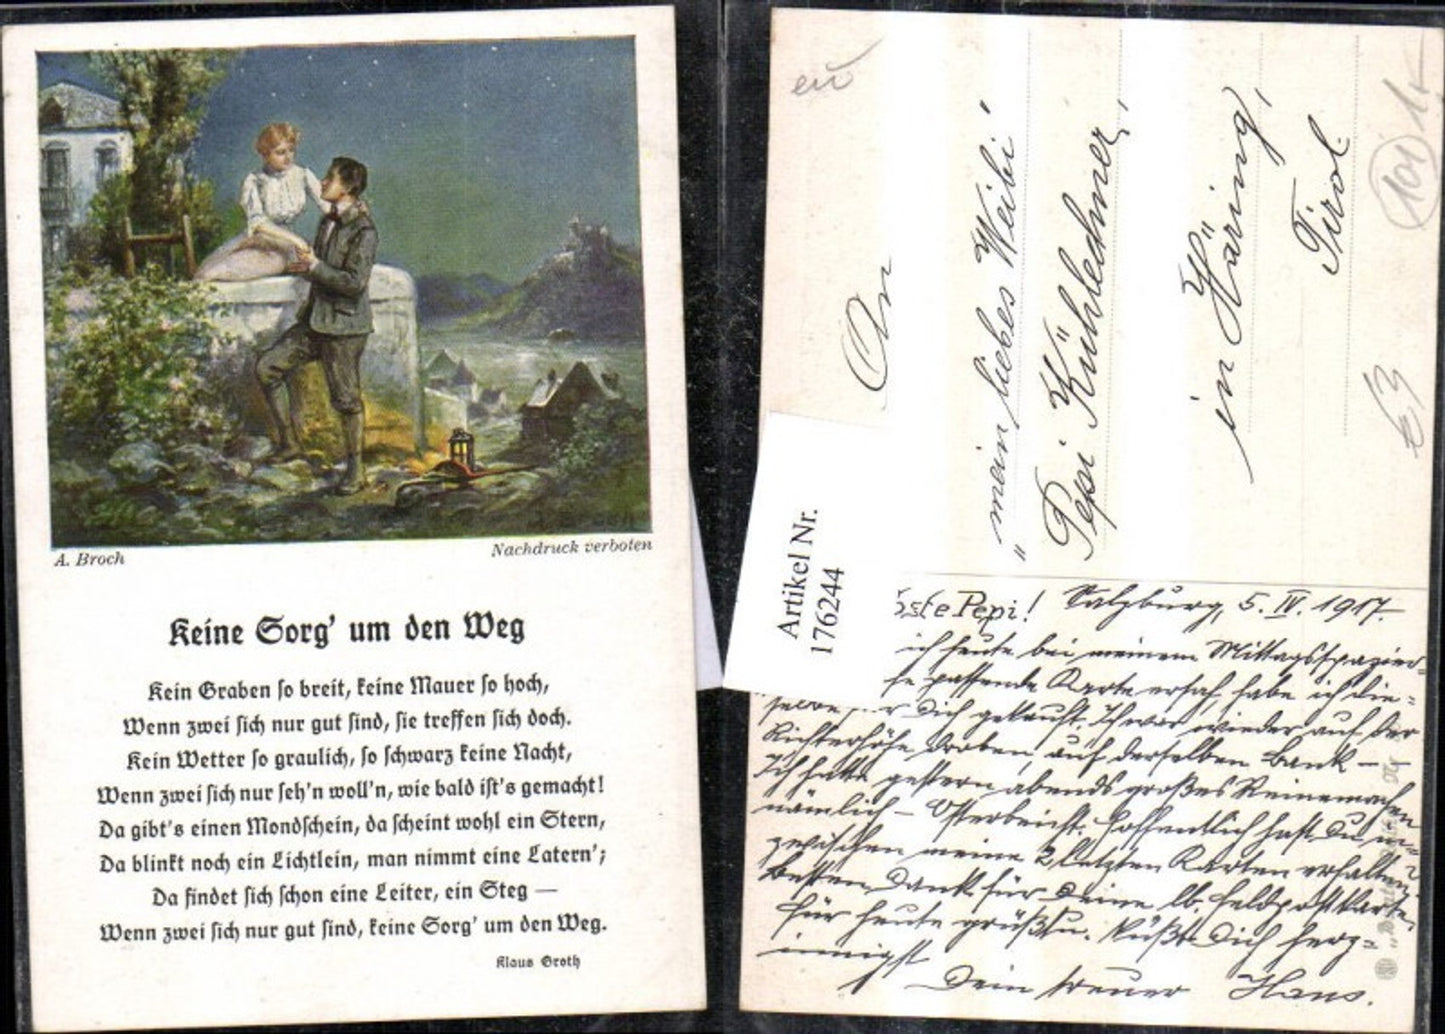 A. Broch
Nachdruck verboten
Keine Sorg' um den Weg
Kein Graben so breit, keine Mauer so hoch,
Wenn zwei sich nur gut sind, sie treffen sich doch.
Kein Wetter so graulich, so schwarz keine Nacht,
Wenn zwei sich nur seh'n woll'n, wie bald ist's gemacht!
Da gibt's einen Mondschein, da scheint wohl ein Stern,
Da blinkt noch ein Lichtlein, man nimmt eine Latern';
Da findet sich schon eine Leiter, ein Steg —
Wenn zwei sich nur gut sind, keine Sorg' um den Weg.
Klaus Groth
eu
An
"mein liebes Weibi"
Pepi Kühlechner,
in Häring,
Tirol
101
Artikel Nr.
176244
ste Pepi! Salzburg, 5. IV. 1917.
ich heute bei meinem Mittagsspazier-
passende Karte ersah, habe ich die-
selbe für Dich gekauft. Ich war wieder auf der
Richterhöhe droben, auf derselben Bank —
Ich hatte gestern abends großes Reinemachen
nämlich – Osterbeicht. Hoffentlich hast Du in-
zwischen meine 2 letzten Karten erhalten?
Besten Dank für Deine lb. Feldpostkarte.
Für heute grüßt u. küßt Dich herz-
innigst
Dein treuer Hans.